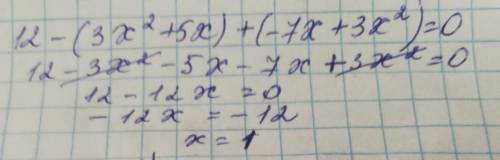 12 - (3x² + 5x) + (-7x + 3x²) = 0
12 - 3x² - 5x - 7x + 3x² = 0
12 - 12x = 0
- 12x = - 12
x = 1